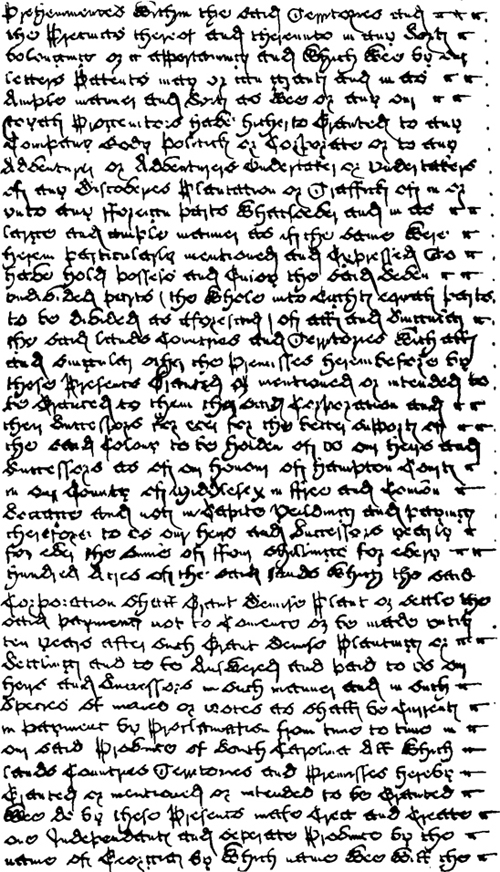 Prehemmences Within the said Territories and
the Precincts thereof and thereunto in any Sort
belonging or a appertaining and Which Wee by our
Letters Patents may or can grant and in as
Ample manner and Sort as Wee or any our
Royall Progenitors have hitherto Granted to any
Company Body Politick or Corporate or to any
Adventurer or Adventurers Undertaker or Undertakers
of any Discoveries Plantation or Traffick of in or
unto any fforeign parts Whatsoever and in as
large and ample manner as if the same Were
herein particularly mentioned and Expressed To
have hold possess and Enjoy the said Seven
undivided parts (the Whole into Eight equall parts
to be divided as aforesaid) of all and Singular
the said Lands Countries and Territories With all
and singular other the Premisses hereinbefore by
these Presents Granted or mentioned or intended to
be Granted to them the said Corporation and
their Successors for ever for the better Support of
the said Colony to be holden of us our heirs and
Successors as of our honour of Hampton Court
in our County of Middlesex in ffree and Comon
Soccage and not in Capite Yeilding and paying
therefore to us our heirs and Successors yearly
for ever the Sume of ffour Shillings for every
hundred Acres of the said Lands Which the said
Corporation Shall Grant Demise Plant or settle the
said payment not to Comence or be made untill
ten years after such Grant Demise Planting or
Settling and to be Answered and paid to us our
heirs and Successors in such manner and in such
Species of mony or notes as shall be Current
in payment by Proclamation from time to time in
our said Province of South Carolina All Which
Lands Countries Territories and Premisses hereby
Granted or mentioned or intended to be Granted
Wee do by these Presents make Erect and Create
one Independant and seperate Province by the
name of Georgia by Which name Wee Will the